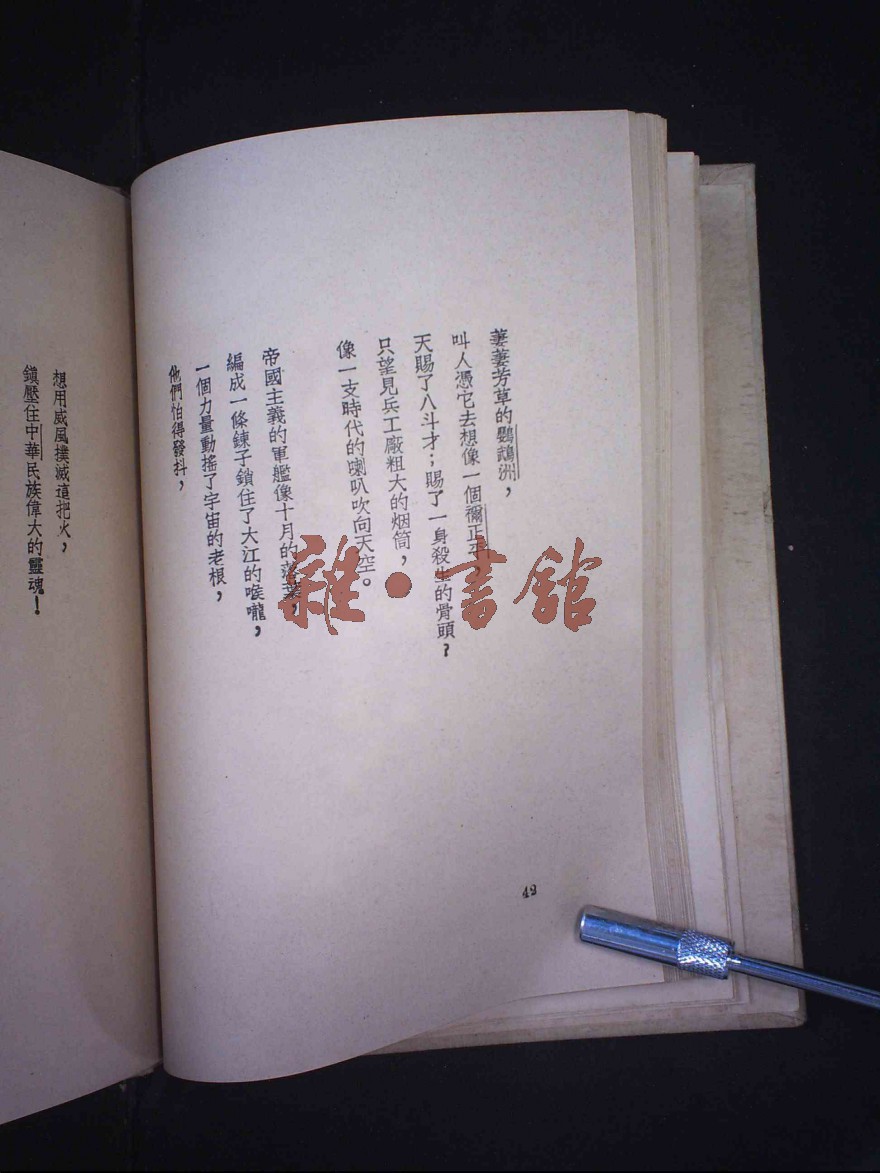 萋萋芳草的鸚鵡洲，
叫人憑它去想像一個禰正平，
天賜了八斗才；賜了一身殺生的骨頭？
只望見兵工廠粗大的烟筒，
像一支時代的喇叭吹向天空。
帝國主義的軍艦像十月的落葉，
編成一條鍊子鎖住了大江的喉嚨，
一個力量動搖了宇宙的老根，
他們怕得發抖，
49
想用威風撲滅這把火，
鎮壓住中華民族偉大的靈魂！
雜·書館